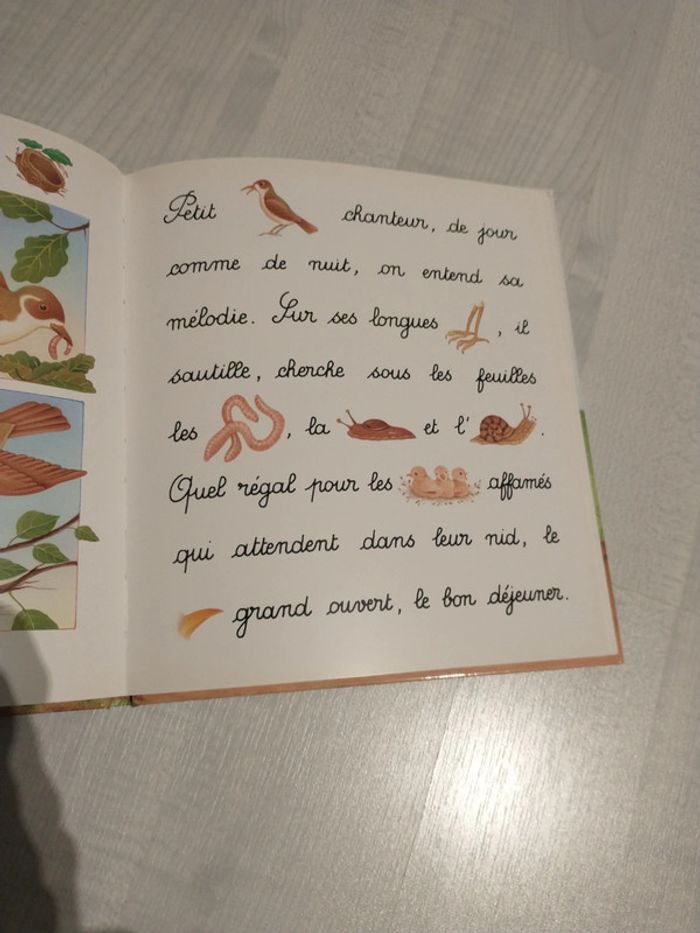 Petit chanteur, de jour
comme de nuit, on entend sa
mélodie. Sur ses longues , il
sautille, cherche sous les feuilles
les , la et l' .
Quel régal pour les affamés
qui attendent dans leur nid, le
grand ouvert, le bon déjeuner.